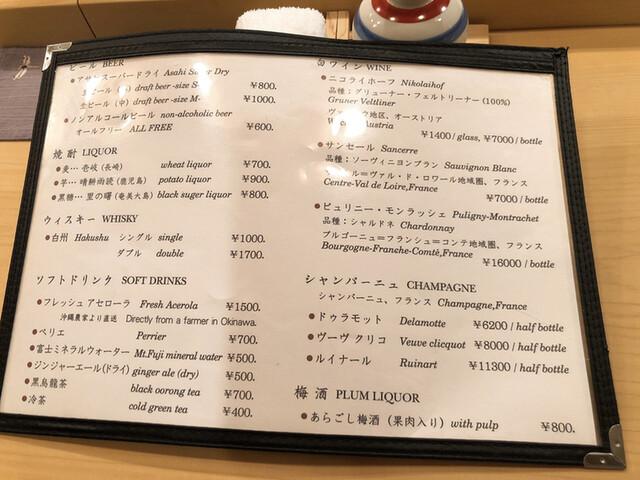 ビール BEER
アサヒスーパードライ Asahi Super Dry
生ビール (小) draft beer -size S- ¥800.
生ビール (中) draft beer -size M- ¥1000.
ノンアルコールビール non-alcoholic beer
オールフリー ALL FREE ¥600.
焼酎 LIQUOR
麦… 壱岐 (長崎) wheat liquor ¥700.
芋… 晴耕雨読 (鹿児島) potato liquor ¥900.
黒糖… 里の曙 (奄美大島) black suger liquor ¥800.
ウィスキー WHISKY
白州 Hakushu シングル single ¥1000.
ダブル double ¥1700.
ソフトドリンク SOFT DRINKS
フレッシュ アセローラ Fresh Acerola ¥1500.
沖縄農家より直送 Directly from a farmer in Okinawa.
ペリエ Perrier ¥700.
富士ミネラルウォーター Mt.Fuji mineral water ¥500.
ジンジャーエール(ドライ) ginger ale (dry) ¥500.
黒烏龍茶 black oorong tea ¥700.
冷茶 cold green tea ¥400.
白ワイン WINE
ニコライホーフ Nikolaihof
品種：グリューナー・フェルトリーナー (100%)
Gruner Veltliner
地区、オーストリア
Austria
¥1400 / glass, ¥7000 / bottle
サンセール Sancerre
品種：ソーヴィニヨンブラン Sauvignon Blanc
ヴァル・ド・ロワール地域圏、フランス
Centre-Val de Loire,France
¥7000 / bottle
ピュリニー・モンラッシェ Puligny-Montrachet
品種：シャルドネ Chardonnay
ブルゴーニュ=フランシュ=コンテ地域圏、フランス
Bourgogne-Franche-Comté,France
¥16000 / bottle
シャンパーニュ CHAMPAGNE
シャンパーニュ、フランス Champagne,France
ドゥラモット Delamotte ¥6200 / half bottle
ヴーヴ クリコ Veuve clicquot ¥8000 / half bottle
ルイナール Ruinart ¥11300 / half bottle
梅酒 PLUM LIQUOR
あらごし梅酒 (果肉入り) with pulp ¥800.